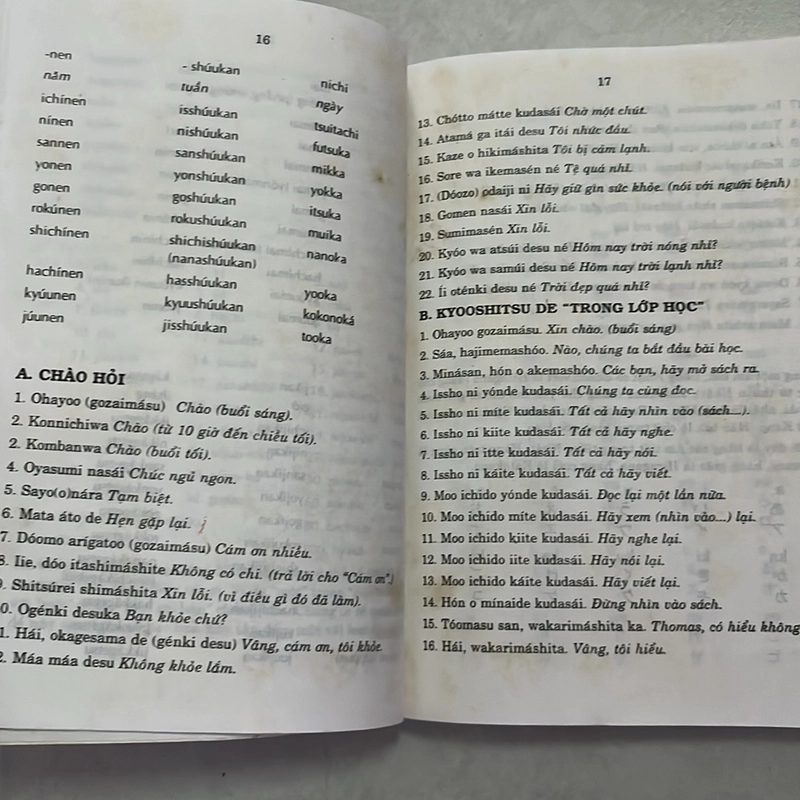 16
-nen - shúukan nichi
năm tuần ngày
ichínen isshúukan tsuitachi
nínen nishúukan futsuka
sannen sanshúukan mikka
yonen yonshúukan yokka
gonen goshúukan itsuka
rokúnen rokushúukan muika
shichínen shichishúukan nanoka
(nanashúukan)
hachínen hasshúukan yooka
kyúunen kyuushúukan kokonoká
júunen jisshúukan tooka
A. CHÀO HỎI
1. Ohayoo (gozaimásu) Chào (buổi sáng).
2. Konnichiwa Chào (từ 10 giờ đến chiều tối).
2. Kombanwa Chào (buổi tối).
4. Oyasumi nasái Chúc ngủ ngon.
5. Sayo(o)nára Tạm biệt.
6. Mata áto de Hẹn gặp lại.
7. Dóomo arígatoo (gozaimásu) Cám ơn nhiều.
8. Iie, dóo itashimáshite Không có chi. (trả lời cho "Cám ơn".)
9. Shitsúrei shimáshita Xin lỗi. (vì điều gì đó đã làm).
0. Ogénki desuka Bạn khỏe chứ?
1. Hái, okagesama de (génki desu) Vâng, cám ơn, tôi khỏe.
2. Máa máa desu Không khỏe lắm.
17
13. Chótto mátte kudasái Chờ một chút.
14. Atamá ga itái desu Tôi nhức đầu.
15. Kaze o hikimáshita Tôi bị cảm lạnh.
16. Sore wa ikemasén né Tệ quá nhỉ.
17. (Dóozo) odaiji ni Hãy giữ gìn sức khỏe. (nói với người bệnh)
18. Gomen nasái Xin lỗi.
19. Sumimasén Xin lỗi.
20. Kyóo wa atsúi desu né Hôm nay trời nóng nhỉ?
21. Kyóo wa samúi desu né Hôm nay trời lạnh nhỉ?
22. Íi oténki desu né Trời đẹp quá nhỉ?
B. KYOOSHITSU DE "TRONG LỚP HỌC"
1. Ohayoo gozaimásu. Xin chào. (buổi sáng)
2. Sáa, hajimemashóo. Nào, chúng ta bắt đầu bài học.
3. Minásan, hón o akemashóo. Các bạn, hãy mở sách ra.
4. Issho ni yónde kudasái. Chúng ta cùng đọc.
5. Issho ni míte kudasái. Tất cả hãy nhìn vào (sách....).
6. Issho ni kiite kudasái. Tất cả hãy nghe.
7. Issho ni itte kudasái. Tất cả hãy nói.
8. Issho ni káite kudasái. Tất cả hãy viết.
9. Moo ichido yónde kudasái. Đọc lại một lần nữa.
10. Moo ichido míte kudasái. Hãy xem (nhìn vào...) lại.
11. Moo ichido kiite kudasái. Hãy nghe lại.
12. Moo ichido iite kudasái. Hãy nói lại.
13. Moo ichido káite kudasái. Hãy viết lại.
14. Hón o mínaide kudasái. Đừng nhìn vào sách.
15. Tóomasu san, wakarimáshita ka. Thomas, có hiểu không
16. Hái, wakarimáshita. Vâng, tôi hiểu.